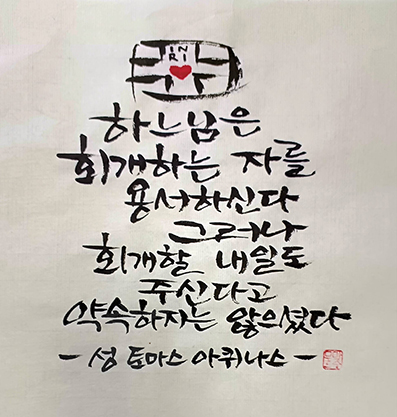 IN
RI
하느님은
회개하는 자를
용서하신다
그러나
회개할 내일도
주신다고
약속하지는 않으셨다
- 성 토마스 아퀴나스 -